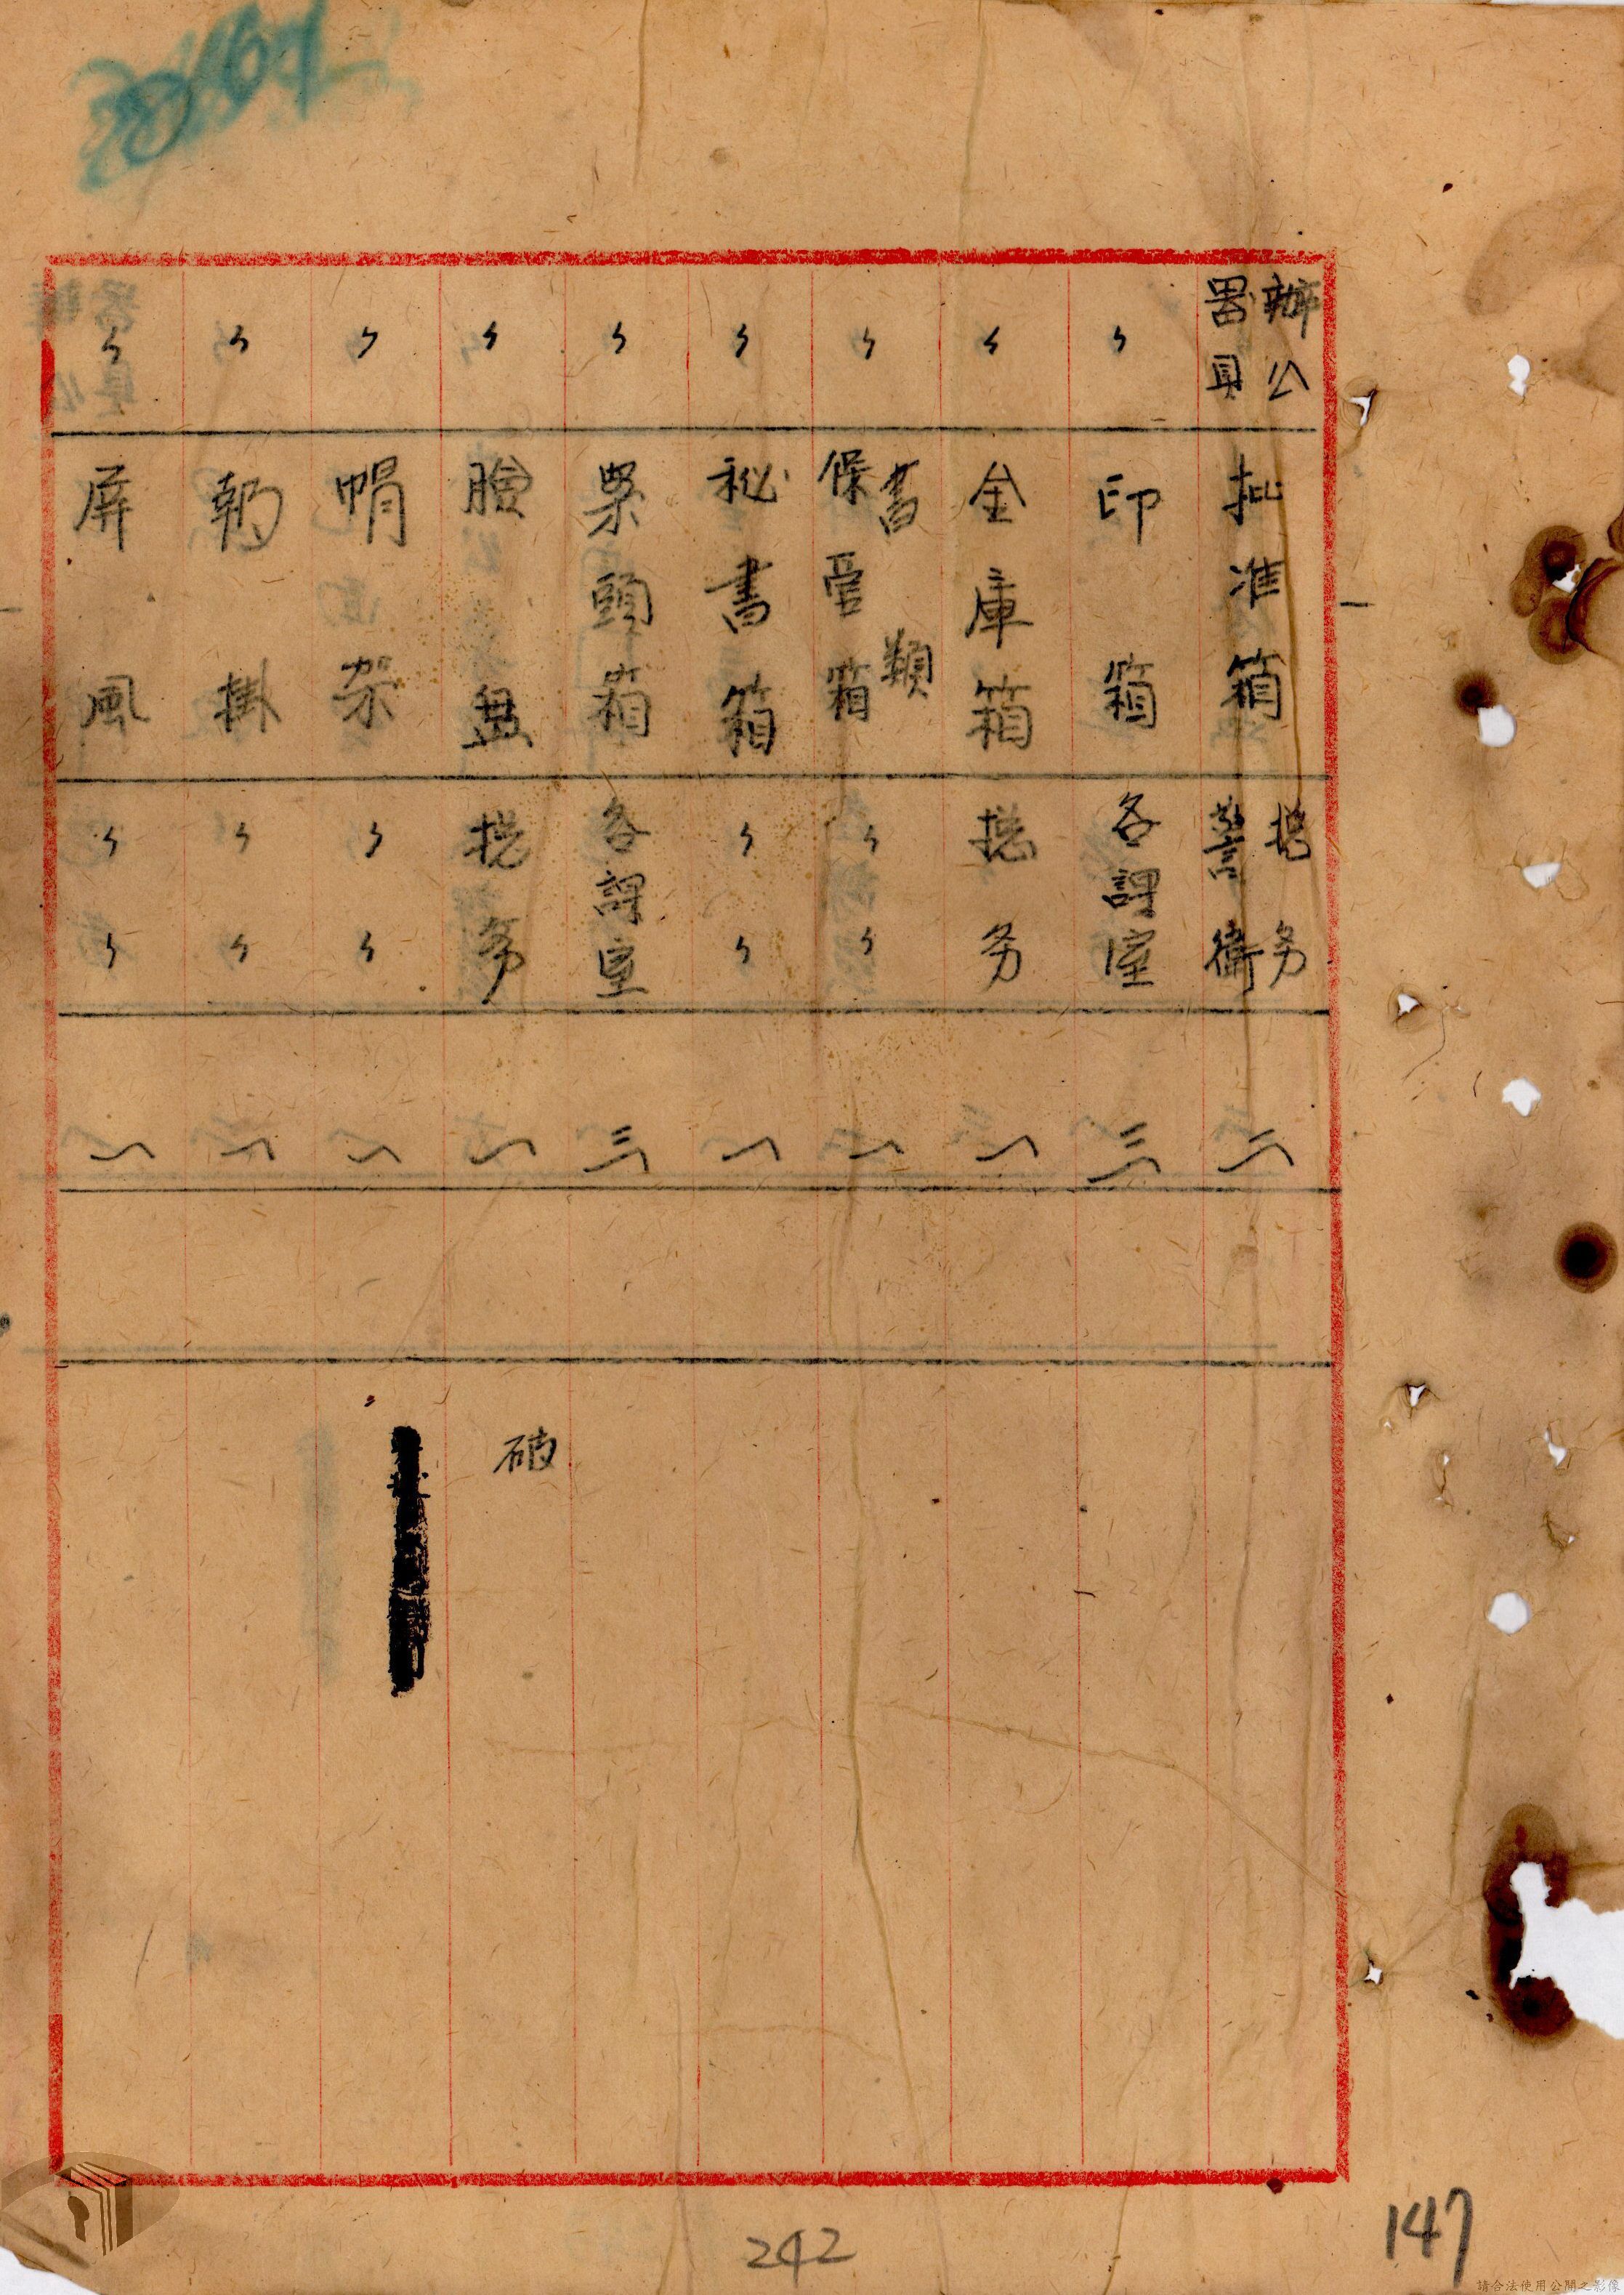 辦公器具 批准箱 總务警衛 二
〃 印箱 各課室 三
〃 金庫箱 總务 一
〃 書類保管箱 〃〃 一
〃 秘書箱 〃〃 一
〃 案頭箱 各課室 三
〃 臉盆 總务 一 破
〃 帽架 〃〃 一
〃 掛 〃〃 一
〃 屏風 〃〃 一
242
147
請合法使用公開之影像